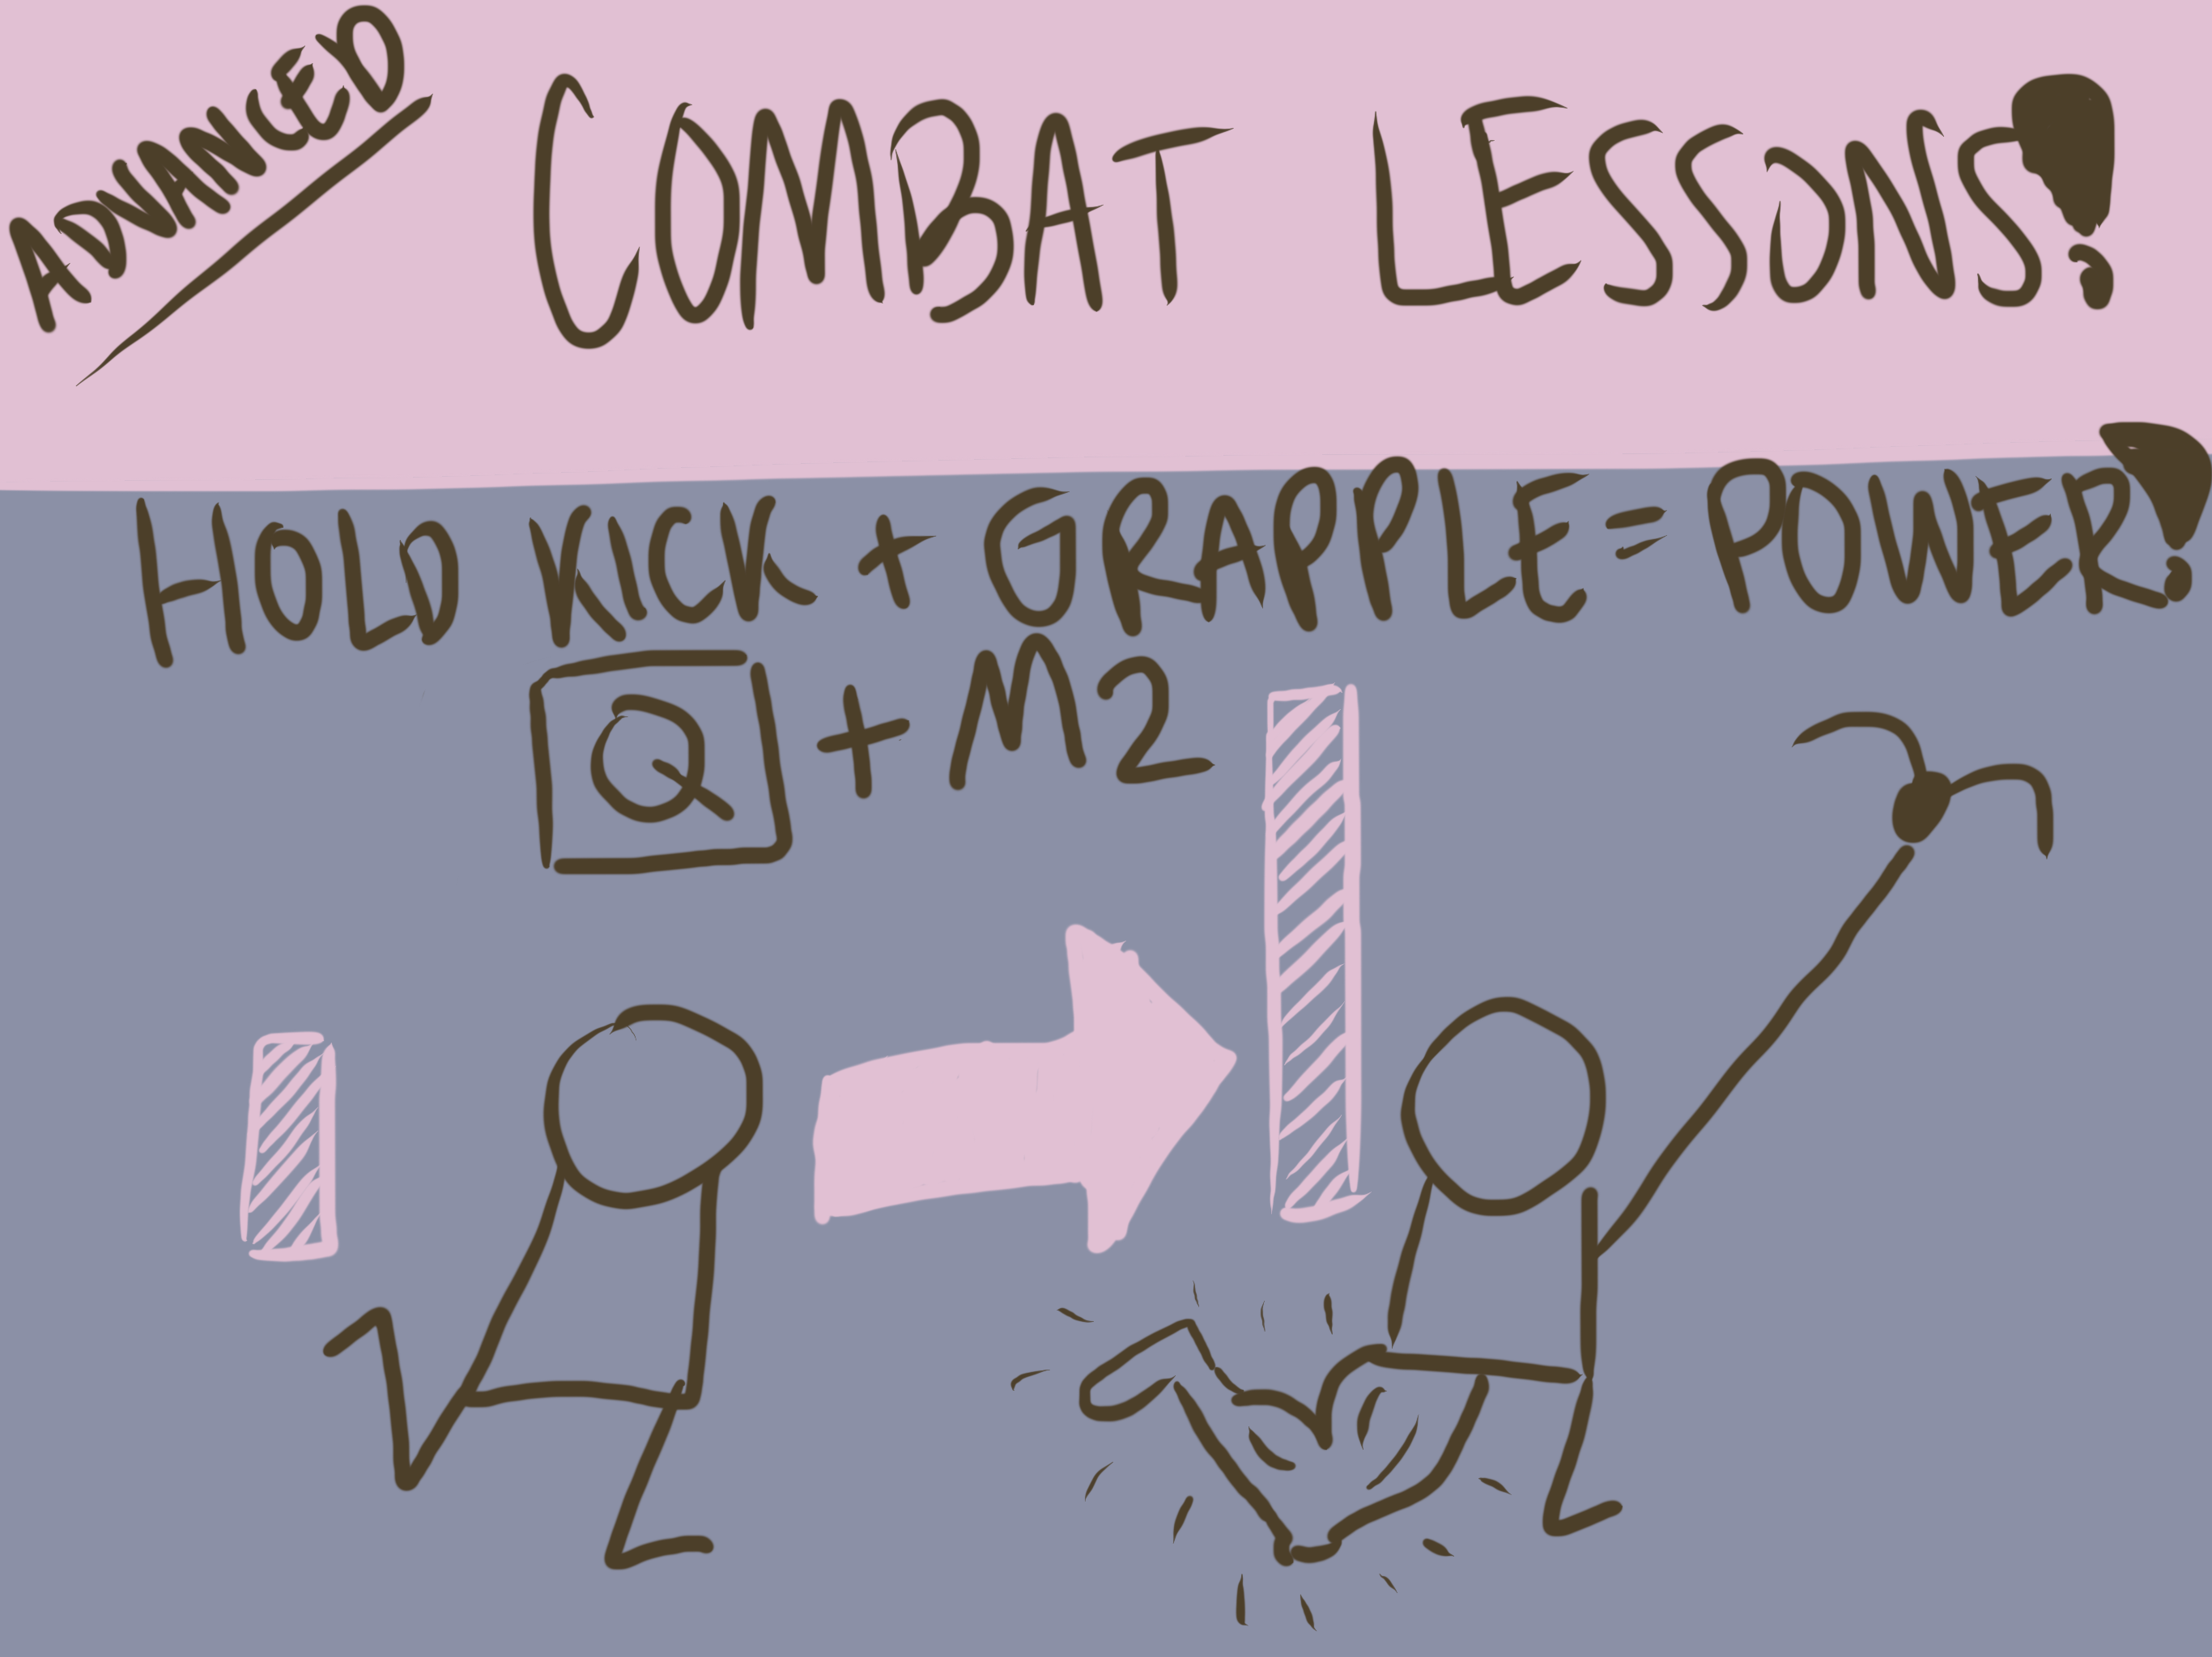 ADVANCED
COMBAT LESSONS!
HOLD KICK + GRAPPLE = POWER!
Q + M2